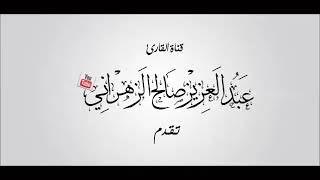 قناة القارئ
عبدالعزيز صالح الزهراني
تقدم